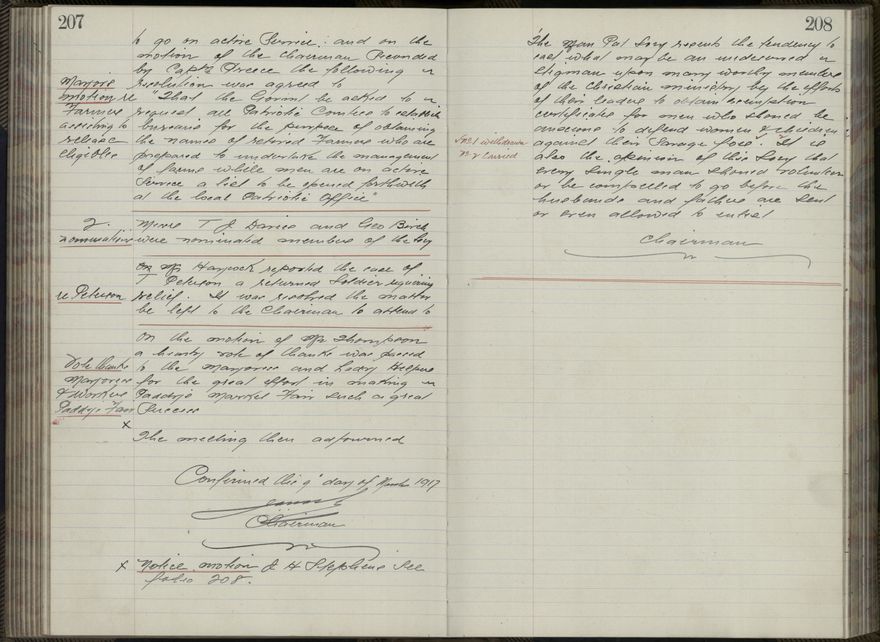 207
to go on active Service: and on the
motion of the Chairman Seconded
by Captn Preece the following
resolution was agreed to
Marjorie
motion re
Farmers
according to
release
eligibles
"That the Govmt be asked to
request all Patriotic Comtees to establish
bureaus for the purpose of obtaining
the names of retired Farmers who are
prepared to undertake the management
of farms while men are on active
Service a list to be opened forthwith
at the local Patriotic Office"
2.
nomination
Messrs T J Davies and Geo Birch
were nominated members of the Socy
re Peterson
Mr Haycock reported the case of
T Peterson a returned Soldier requiring
relief. It was resolved the matter
be left to the Chairman to attend to
Vote thanks
Marjories
& Workers
Paddys Fair
On the motion of Mr Thompson
a hearty vote of thanks was passed
to the Marjories and Lady Helpers
for the great effort in making
Paddys Market Fair such a great
Success
x
The meeting then adjourned
Confirmed this 9th day of March 1917
Chairman
x Notice motion J H Stephens See
folio 208.
208
"The Wgan Pat Socy regrets the tendency to
cast what may be an undeserved
Stigman upon many worthy members
of the Christian ministry by the efforts
of their leaders to obtain exemption
certificates for men who should be
anxious to defend women & children
against their Savage foes". It is
also the opinion of this Socy that
every single man should volunteer
or be compelled to go before the
husbands and fathers are sent
or even allowed to enlist
No 1 withdrawn
No 2 carried
Chairman